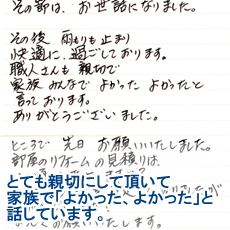 その節は、お世話になりました。
その後 雨もりも止まり
快適に、過ごしております。
職人さんも 親切で
家族 みんなで よかった よかったと
言っております。
ありがとうございました。
ところで 先日 お願いいたしました。
部屋のリフォームの見積りは
とても親切にして頂いて
家族で「よかった、よかった」と
話しています。
お願いいたします。